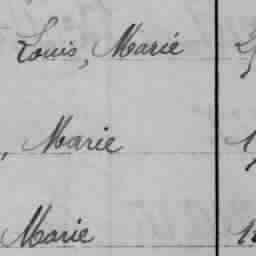 Louis, Marie
, Marie
Marie